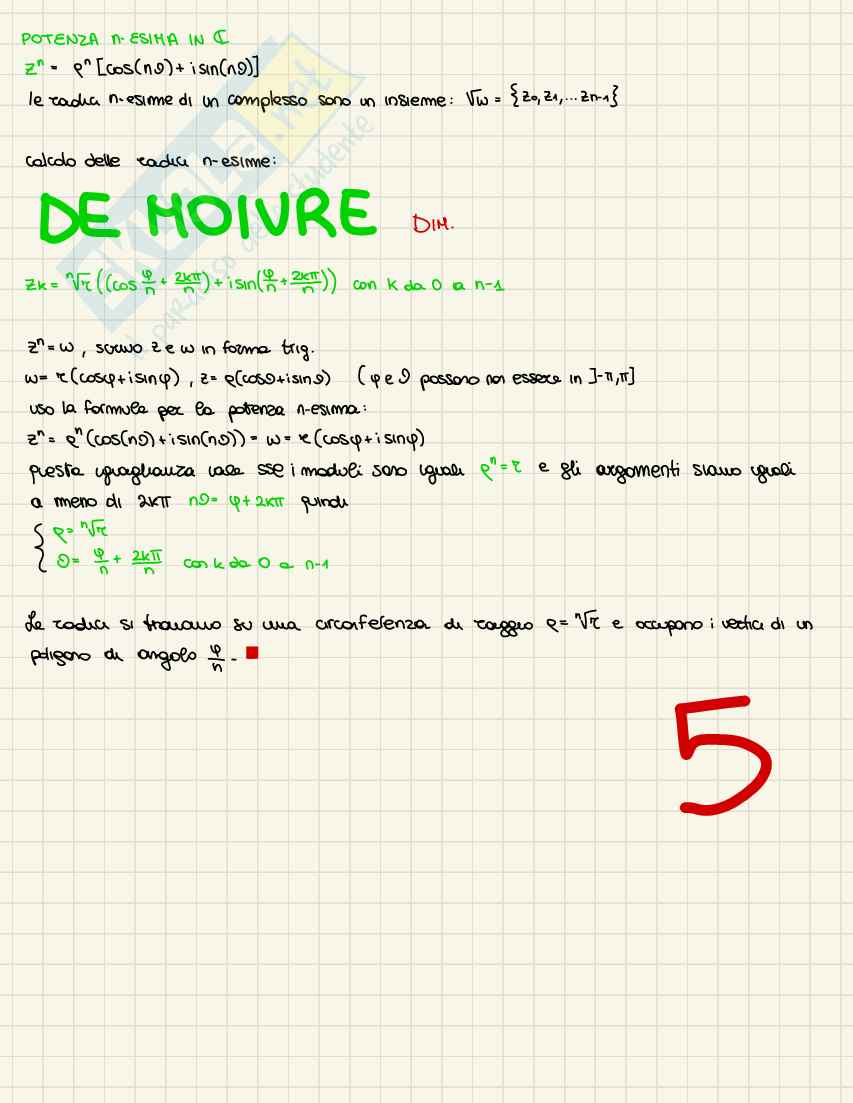 POTENZA n-ESIMA IN ℂ
zⁿ = ρⁿ [cos(nθ) + i sin(nθ)]
le radici n-esime di un complesso sono un insieme: √w = {z₀, z₁, ... zₙ₋₁}
calcolo delle radici n-esime:
DE MOIVRE DIM.
zₖ = ⁿ√r ((cos φ/n + 2kπ/n) + i sin(φ/n + 2kπ/n)) con k da 0 a n-1
zⁿ = w, scrivo z e w in forma trig.
w = r(cosφ + i sinφ), z = ρ(cosθ + i sinθ) (φ e θ possono non essere in ]-π,π]
uso la formula per la potenza n-esima:
zⁿ = ρⁿ(cos(nθ) + i sin(nθ)) = w = r(cosφ + i sinφ)
questa uguaglianza vale sse i moduli sono uguali ρⁿ = r e gli argomenti siano uguali
a meno di 2kπ nθ = φ + 2kπ quindi
{ρ = ⁿ√r
θ = φ/n + 2kπ/n con k da 0 a n-1
Le radici si trovano su una circonferenza di raggio ρ = ⁿ√r e occupano i vertici di un
poligono di angolo φ/n.
5
SKUOLA.net
il paradiso dello studente